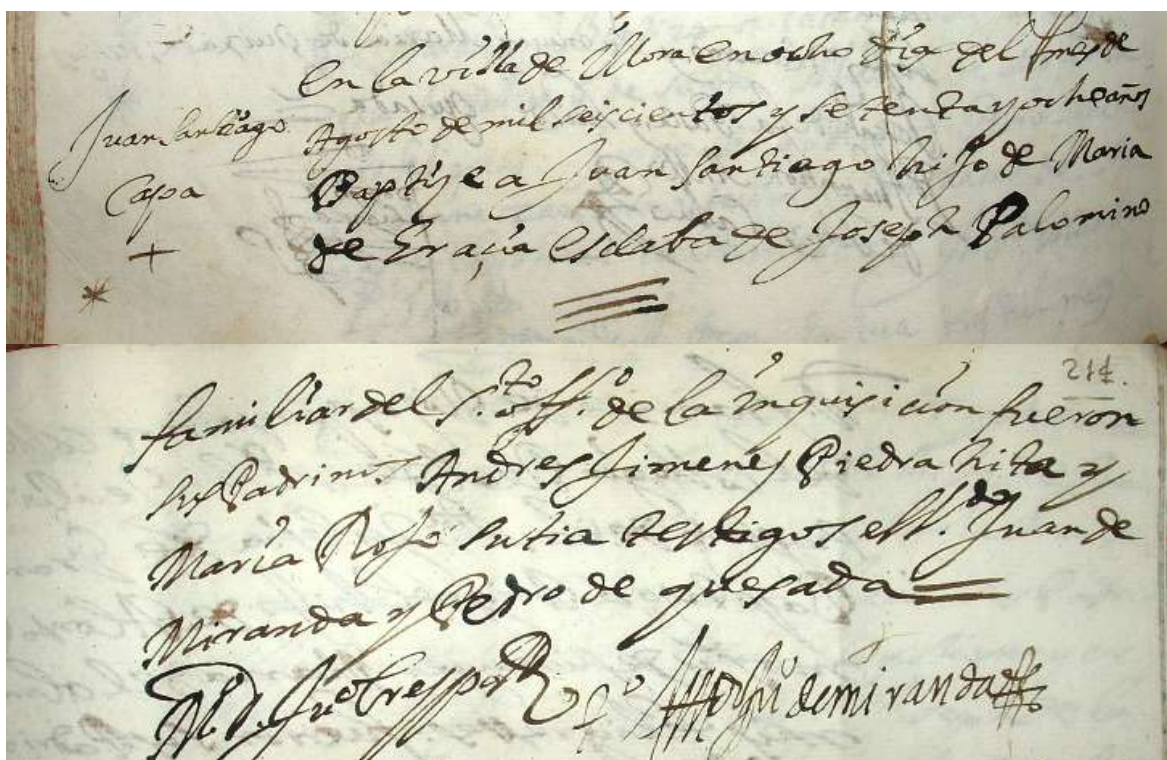 En la villa de Mora en ocho dias del mes de
Juan Santiago
Agosto de mil seiscientos y setenta y ocho años
Baptize a Juan Santiago hijo de Maria
Capa
de Graçia esclaba de Joseph Palomino
+
214.
familiar del S.to Off.o de la inquisicion fueron
sus Padrinos Andres Jimenez Piedra hita y
Maria Rosa su tia testigos el
Juan de
Miranda y Pedro de quesada
de miranda